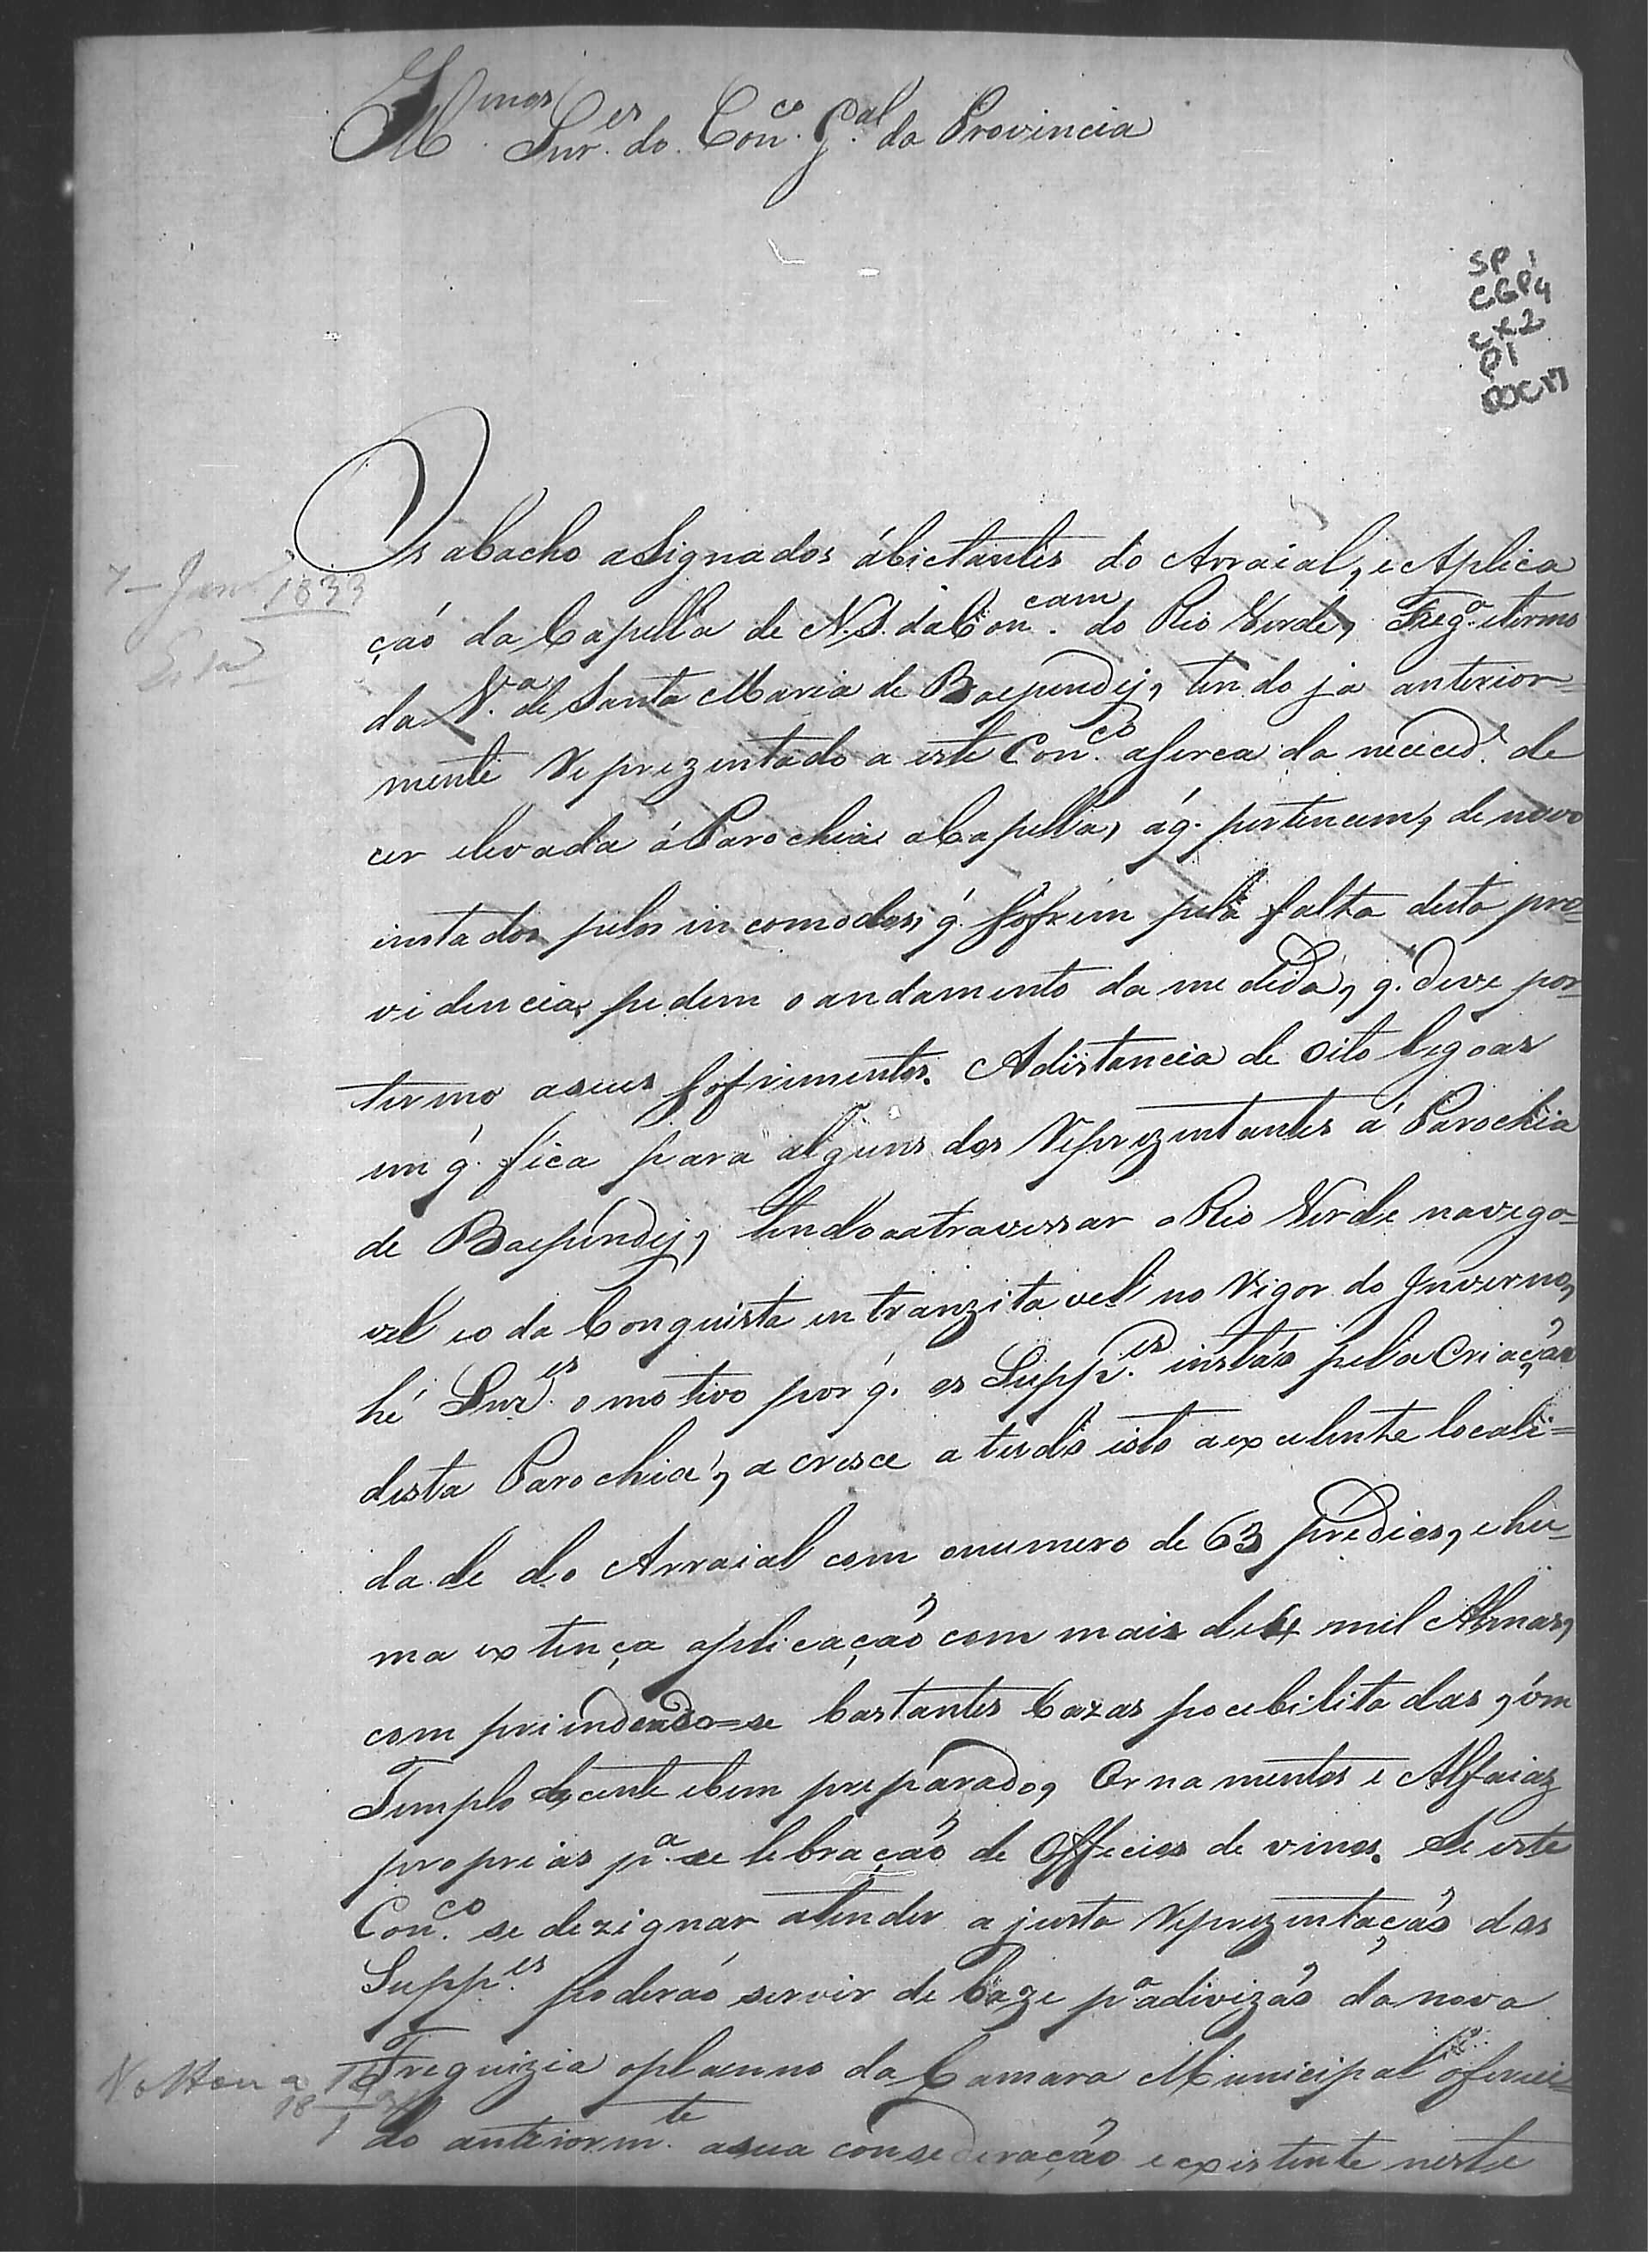 Ill.mos Snr.es do Con.co G.al da Provincia
SP
CGP4
cx2
P1
DOC 17
Os abacho aSignados ábictantes do Arraial, e Aplica
çaó da Capella de N. S. da Con.cam do Rio Verde, Freg.a e termo
da V.a de Santa Maria de Baependij, tendo ja anterior=
mente Reprezentado a este Con.co aserca da nececed.e de
cer elevada á Parochia a Capella, á q. pertencem, de novo
instados pelos incomodos, q. sofrem pela falta desta pro=
videncia, pedem o andamento da medida, q. deve por=
termo aseus sofrimentos. Adistancia de oito legoas
em q. fica para alguns dos Reprezentantes á Parochia
de Baependij, tendo aatravessar o Rio Verde navega=
vel eo da Conquista entranzitavel no Vigor do Inverno,
hé Snr.es o motivo por q. os Supp.es instaó pella Criaçaó
desta Parochia, acresce atudo isto aexcelente locali=
dade do Arraial com onumero de 63 predios, e hu=
ma extença aplicaçaó com mais de 4 mil Almas,
compriendendo=se bastantes Cazas pocebilitadas, úm
Templo decente ebem preparado, Ornamentos e Alfaiaz
proprias p.a selebraçaó de Officios devinos. Se este
Con.co se dezignar atender a justa Reprezentaçaó dos
Supp.es poderaó servir de baze p.a adivizaó da nova
Freguizia oplanno da Camara Municipal ofereci=
do anteriorm.te asua consederaçaó eexistente neste
7 - Jan.o 1833